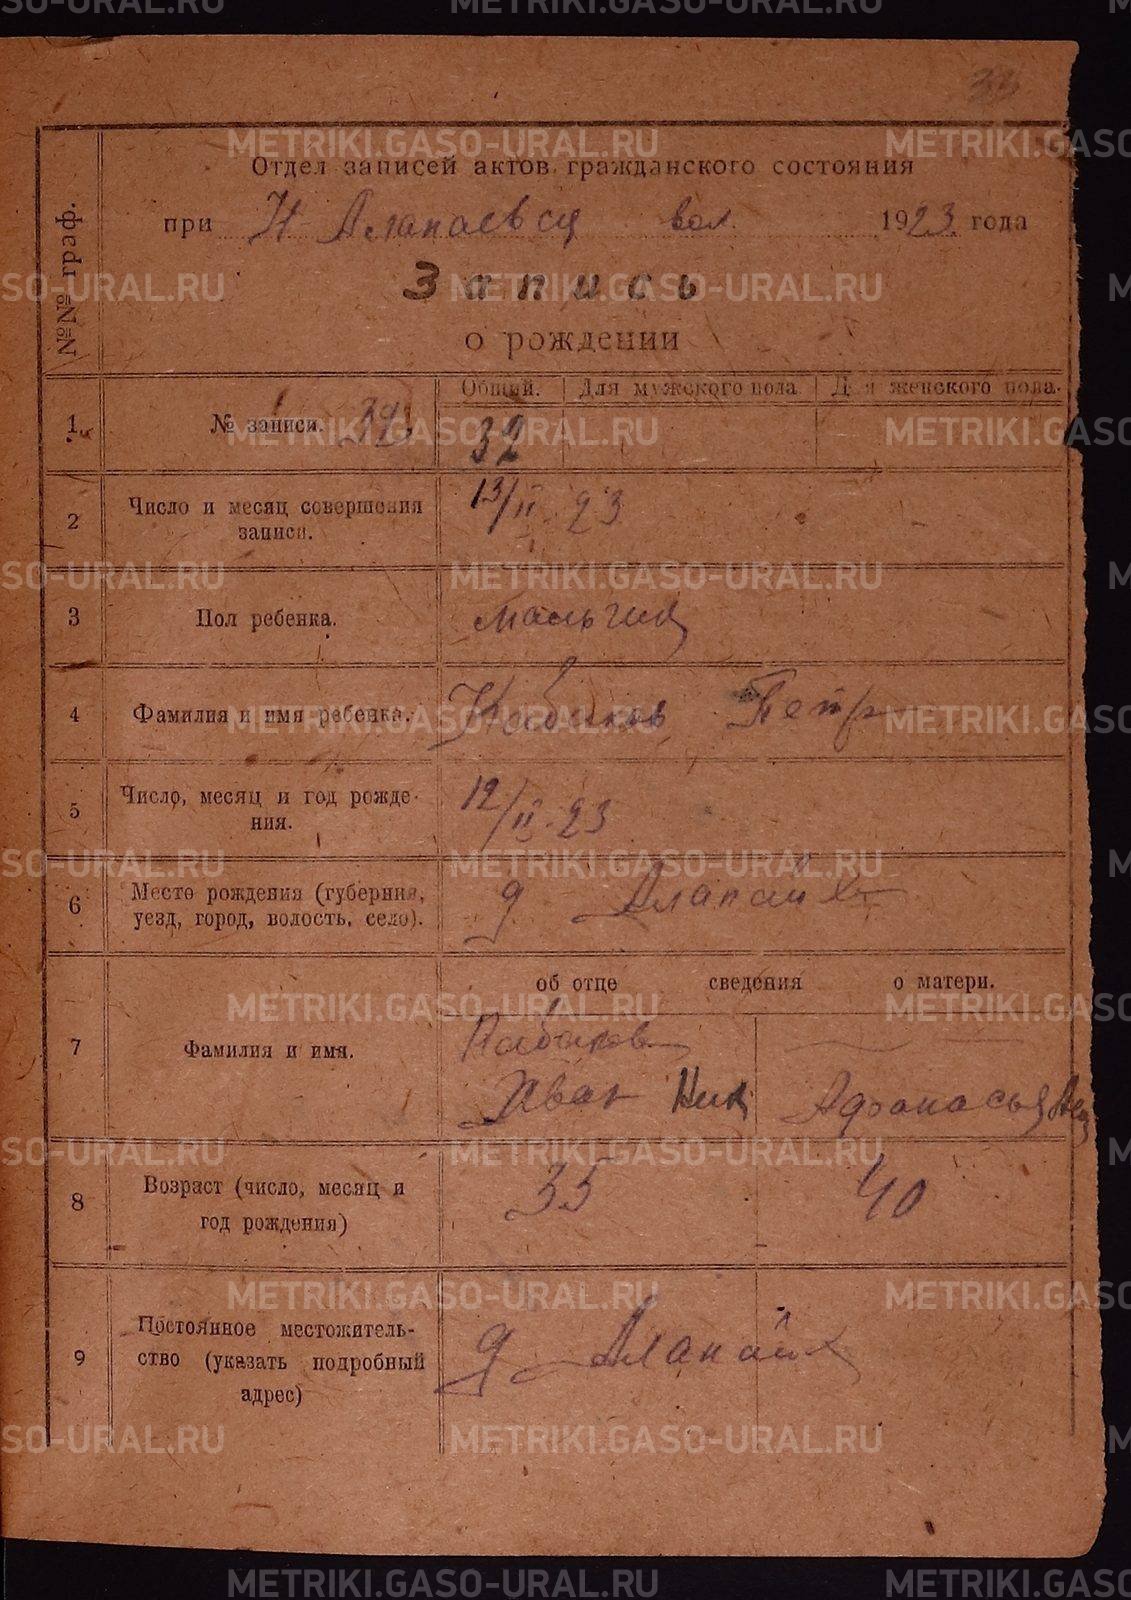 33
Отдел записей актов гражданского состояния
при Н Алапаевск вол. 1923 года
Запись
о рождении
№№ граф.
Общий. Для мужского пола Для женского пола.
1 № записи. 32 32
2 Число и месяц совершения
записи.
13/II 23
3 Пол ребенка. мальчик
4 Фамилия и имя ребенка. Кабаков Петр
5 Число, месяц и год рожде-
ния.
12/II 23
6 Место рождения (губерния,
уезд, город, волость, село).
д Алапаиха
об отце сведения о матери.
7 Фамилия и имя.
Кабаков
Иван Ник Афанасья
8 Возраст (число, месяц и
год рождения)
35 40
9 Постоянное местожитель-
ство (указать подробный
адрес)
д Алапаих
METRIKI.GASO-URAL.RU